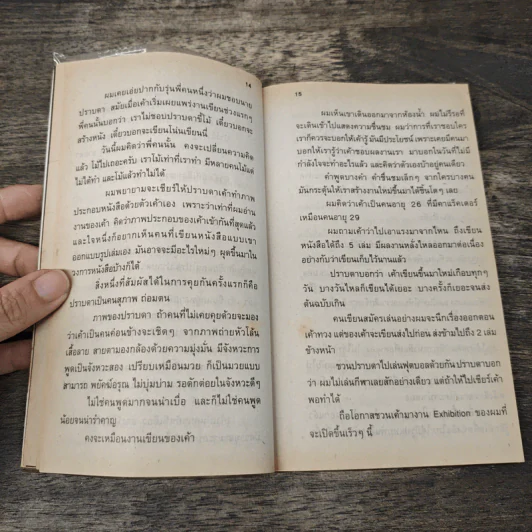 14
ผมเคยเอ่ยปากกับรุ่นพี่คนหนึ่งว่าผมชอบนาย
ปราบดา สมัยเมื่อเค้าเริ่มเผยแพร่งานเขียนช่วงแรกๆ
พี่คนนั้นบอกว่า เราไม่ชอบปราบดาขี้ไม้ เดี๋ยวบอกจะ
สร้างหนัง เดี๋ยวบอกจะเขียนโน่นเขียนนี่
วันนี้ผมคิดว่าพี่คนนั้น คงจะเปลี่ยนความคิด
แล้ว ไม้ไปเถอะครับ เราไม้เท่าที่เราทำ มีหลายคนไม้แต่
ไม่ได้ทำ และไม้แล้วทำไม่ได้
ผมพยายามจะเชียร์ให้ปราบดาเค้าทำภาพ
ประกอบหนังสือด้วยตัวเค้าเอง เพราะว่าเท่าที่ผมอ่าน
งานของเค้า คิดว่าภาพประกอบของเค้าเข้ากันที่สุดแล้ว
และใจหนึ่งก็อยากเห็นคนที่เขียนหนังสือแบบเขา
ออกแบบรูปเล่มเอง มันอาจจะมีอะไรใหม่ๆ ผุดขึ้นมาใน
วงการหนังสือบ้างก็ได้
สิ่งหนึ่งที่สัมผัสได้ในการคุยกันครั้งแรกก็คือ
ปราบดาเป็นคนสุภาพ ถ่อมตน
ภาพของปราบดา ถ้าคนที่ไม่เคยคุยด้วยจะมอง
ว่าเค้าเป็นคนค่อนข้างจะเชิดๆ จากภาพถ่ายหัวโล้น
เสื้อลาย สายตามองกล้องด้วยความมุ่งมั่น มีจังหวะการ
พูดเป็นจังหวะสอง เปรียบเหมือนมวย ก็เป็นมวยแบบ
สามารถ พยัคฆ์อรุณ ไม่บุ่มบ่าม รอดักต่อยในจังหวะดีๆ
ไม่ใช่คนพูดมากจนน่าเบื่อ และก็ไม่ใช่คนพูด
น้อยจนน่ารำคาญ
คงจะเหมือนงานเขียนของเค้า
15
ผมเห็นเขาเดินออกมาจากห้องน้ำ ผมไม่รีรอที่
จะเดินเข้าไปแสดงความชื่นชม ผมว่าการที่เราชอบใคร
เราก็ควรจะบอกให้เค้ารู้ มันมีประโยชน์ เพราะเคยมีคนมา
บอกให้เรารู้ว่าเค้าชอบผลงานเรา มาบอกในวันที่ไม่มี
กำลังใจจะทำอะไรแล้ว และคิดว่าตัวเองบ้าอยู่คนเดียว
คำพูดบางคำ คำชื่นชมเล็กๆ จากใครบางคน
มันกระตุ้นให้เราสร้างงานใหม่ขึ้นมาได้ชิ้นโตๆ เลย
ผมคิดว่าเค้าเป็นคนอายุ 26 ที่มีคาแร็คเตอร์
เหมือนคนอายุ 29
ผมถามเค้าว่าไปเอาแรงมาจากไหน ถึงเขียน
หนังสือได้ถึง 5 เล่ม มีผลงานหลั่งไหลออกมาต่อเนื่อง
อย่างกับว่าเขียนเก็บไว้นานแล้ว
ปราบดาบอกว่า เค้าเขียนขึ้นมาใหม่เกือบทุกๆ
วัน บางวันไหลก็เขียนได้เยอะ บางครั้งก็เยอะจนส่ง
ต้นฉบับเกิน
คนเขียนสมัครเล่นอย่างผมจะนึกเรื่องออกตอน
เค้าทวง แต่ของเค้าจะเขียนส่งไปก่อน ส่งข้ามไปถึง 2 เล่ม
ข้างหน้า
ชวนปราบดาไปเล่นฟุตบอลด้วยกันปราบดาบอก
ว่า ผมไม่เล่นกีฬาเลยสักอย่างเดียว แต่ถ้าให้ไปเชียร์เค้า
พอทำได้
ถือโอกาสชวนเค้ามางาน Exhibition ของผมที่
จะเปิดขึ้นเร็วๆ นี้